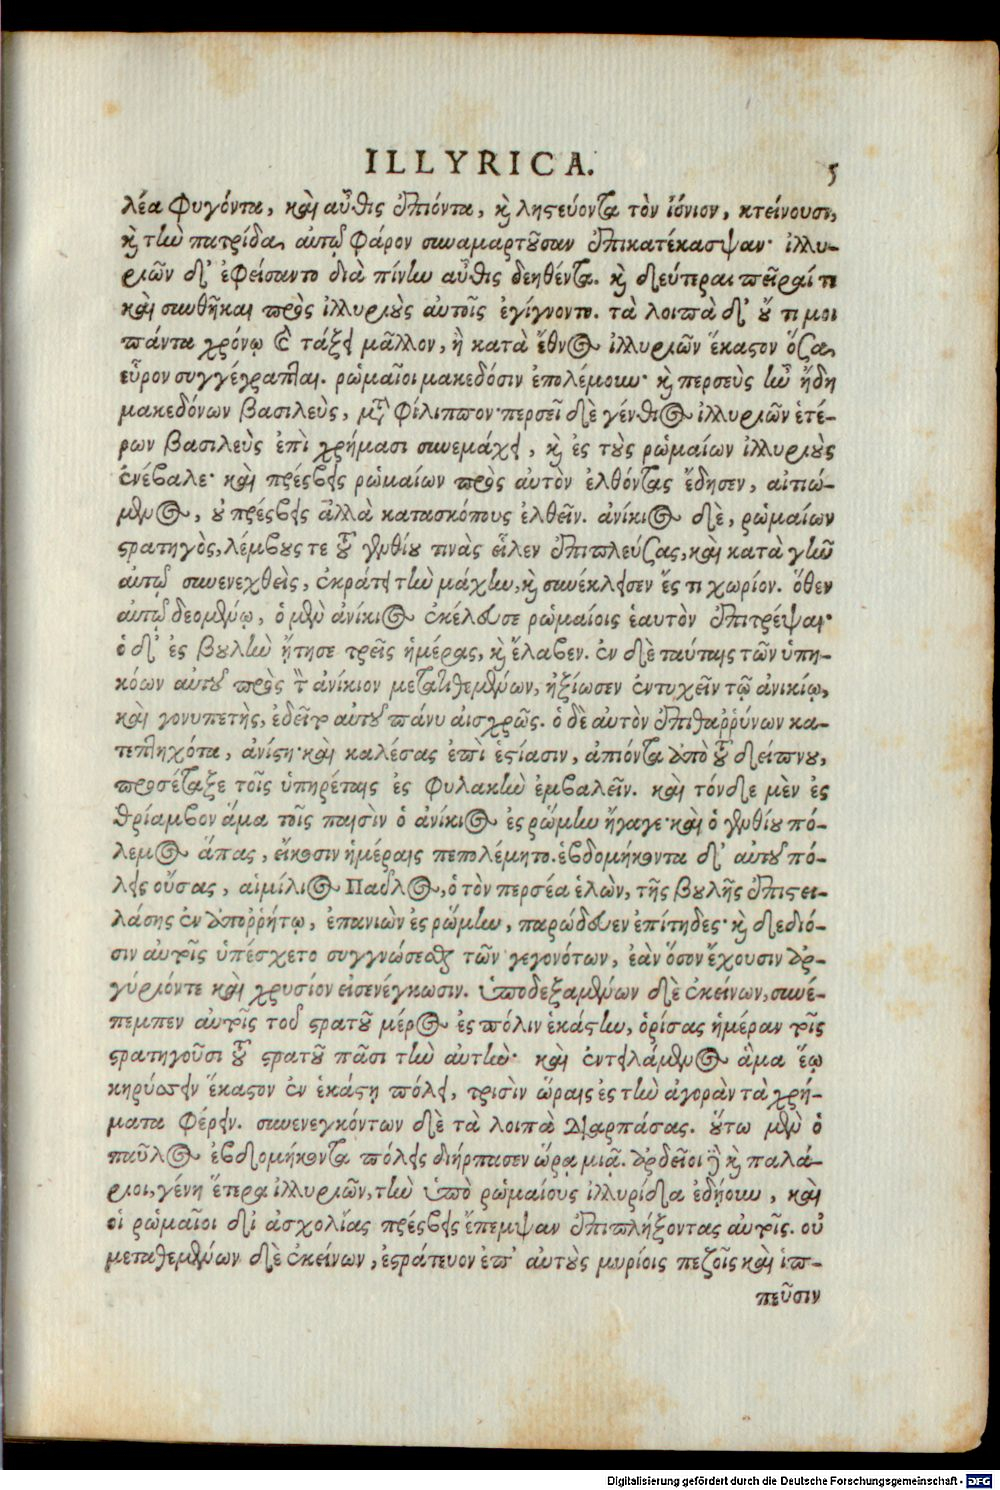 ILLYRICA. 5
λέα φυγόντα, καὶ αὖθις ἐπιόντα, καὶ ληστεύοντα τὸν ἰόνιον, κτείνουσι,
καὶ τὴν πατρίδα αὐτῷ φάρον συναμαρτοῦσαν ἐπικατέκαψαν· ἰλλυ-
ριῶν δ' ἐφείσαντο διὰ πίνην αὖθις δεηθέντα. καὶ δεύτεραι πεῖραί τι
καὶ συνθῆκαι πρὸς ἰλλυριοὺς αὐτοῖς ἐγίγνοντο. τὰ λοιπὰ δ' οὔ τι μοι
πάντα χρόνῳ καὶ τάξει μᾶλλον, ἢ κατὰ ἔθνος ἰλλυριῶν ἕκαστον ὅσα
εὗρον συγγέγραπται. ῥωμαῖοι μακεδόσιν ἐπολέμουν· καὶ περσεὺς ἦν ἤδη
μακεδόνων βασιλεὺς, μετὰ φίλιππον· περσεῖ δὲ γένθιος ἰλλυριῶν ἑτέ-
ρων βασιλεὺς ἐπὶ χρήμασι συνεμάχει, καὶ ἐς τοὺς ῥωμαίων ἰλλυριοὺς
ἐνέβαλε· καὶ πρέσβεις ῥωμαίων πρὸς αὐτὸν ἐλθόντας ἔδησεν, αἰτιώ-
μενος, οὐ πρέσβεις ἀλλὰ κατασκόπους ἐλθεῖν. ἀνίκιος δὲ, ῥωμαίων
στρατηγὸς, λέμβους τε τοῦ γενθίου τινὰς εἷλεν ἐπιπλεύσας, καὶ κατὰ γῆν
αὐτῷ συνενεχθεὶς, ἐκράτει τὴν μάχην, καὶ συνέκλεισεν ἔς τι χωρίον. ὅθεν
αὐτῷ δεομένῳ, ὁ μὲν ἀνίκιος ἐκέλευσε ῥωμαίοις ἑαυτὸν ἐπιτρέψαι·
ὁ δ' ἐς βουλὴν ᾔτησε τρεῖς ἡμέρας, καὶ ἔλαβεν. ἐν δὲ ταύταις τῶν ὑπη-
κόων αὐτοῦ πρὸς τὸν ἀνίκιον μετατιθεμένων, ἠξίωσεν ἐντυχεῖν τῷ ἀνικίῳ,
καὶ γονυπετὴς, ἐδεῖτο αὐτοῦ πάνυ αἰσχρῶς. ὁ δὲ αὐτὸν ἐπιθαῤῥύνων κα-
τεπτηχότα, ἀνίστη· καὶ καλέσας ἐπὶ ἑστίασιν, ἀπιόντα ἀπὸ τοῦ δείπνου,
προσέταξε τοῖς ὑπηρέταις ἐς φυλακὴν ἐμβαλεῖν. καὶ τόνδε μὲν ἐς
θρίαμβον ἅμα τοῖς παισὶν ὁ ἀνίκιος ἐς ῥώμην ἤγαγε· καὶ ὁ γενθίου πό-
λεμος ἅπας, εἴκοσιν ἡμέραις πεπολέμητο. ἑβδομήκοντα δ' αὐτοῦ πό-
λεις οὔσας, αἰμίλιος Παῦλος, ὁ τὸν περσέα ἑλὼν, τῆς βουλῆς ἐπιστει-
λάσης ἐν ἀποῤῥήτῳ, ἐπανιὼν ἐς ῥώμην, παρώδευεν ἐπίτηδες· καὶ δεδιό-
σιν αὐτοῖς ὑπέσχετο συγγνώσεσθαι τῶν γεγονότων, ἐὰν ὅσον ἔχουσιν ἀρ-
γύριόντε καὶ χρυσίον εἰσενέγκωσιν. ὑποδεξαμένων δὲ ἐκείνων, συνέ-
πεμπεν αὐτοῖς τοῦ στρατοῦ μέρος ἐς πόλιν ἑκάστην, ὁρίσας ἡμέραν τοῖς
στρατηγοῦσι τοῦ στρατοῦ πᾶσι τὴν αὐτὴν· καὶ ἐντειλάμενος ἅμα ἕῳ
κηρύσσειν ἕκαστον ἐν ἑκάστῃ πόλει, τρισὶν ὥραις ἐς τὴν ἀγορὰν τὰ χρή-
ματα φέρειν. συνενεγκόντων δὲ τὰ λοιπὰ διαρπάσας. οὕτω μὲν ὁ
παῦλος ἑβδομήκοντα πόλεις διήρπασεν ὥρᾳ μιᾷ. ἀρδεῖοι δὲ καὶ παλά-
ριοι, γένη ἕτερα ἰλλυριῶν, τὴν ὑπὸ ῥωμαίους ἰλλυρίδα ἐδῄουν, καὶ
οἱ ῥωμαῖοι δι' ἀσχολίας πρέσβεις ἔπεμψαν ἐπιπλήξοντας αὐτοῖς. οὐ
μεταθεμένων δὲ ἐκείνων, ἐστράτευον ἐπ' αὐτοὺς μυρίοις πεζοῖς καὶ ἱπ-
πεῦσιν
Digitalisierung gefördert durch die Deutsche Forschungsgemeinschaft - DFG